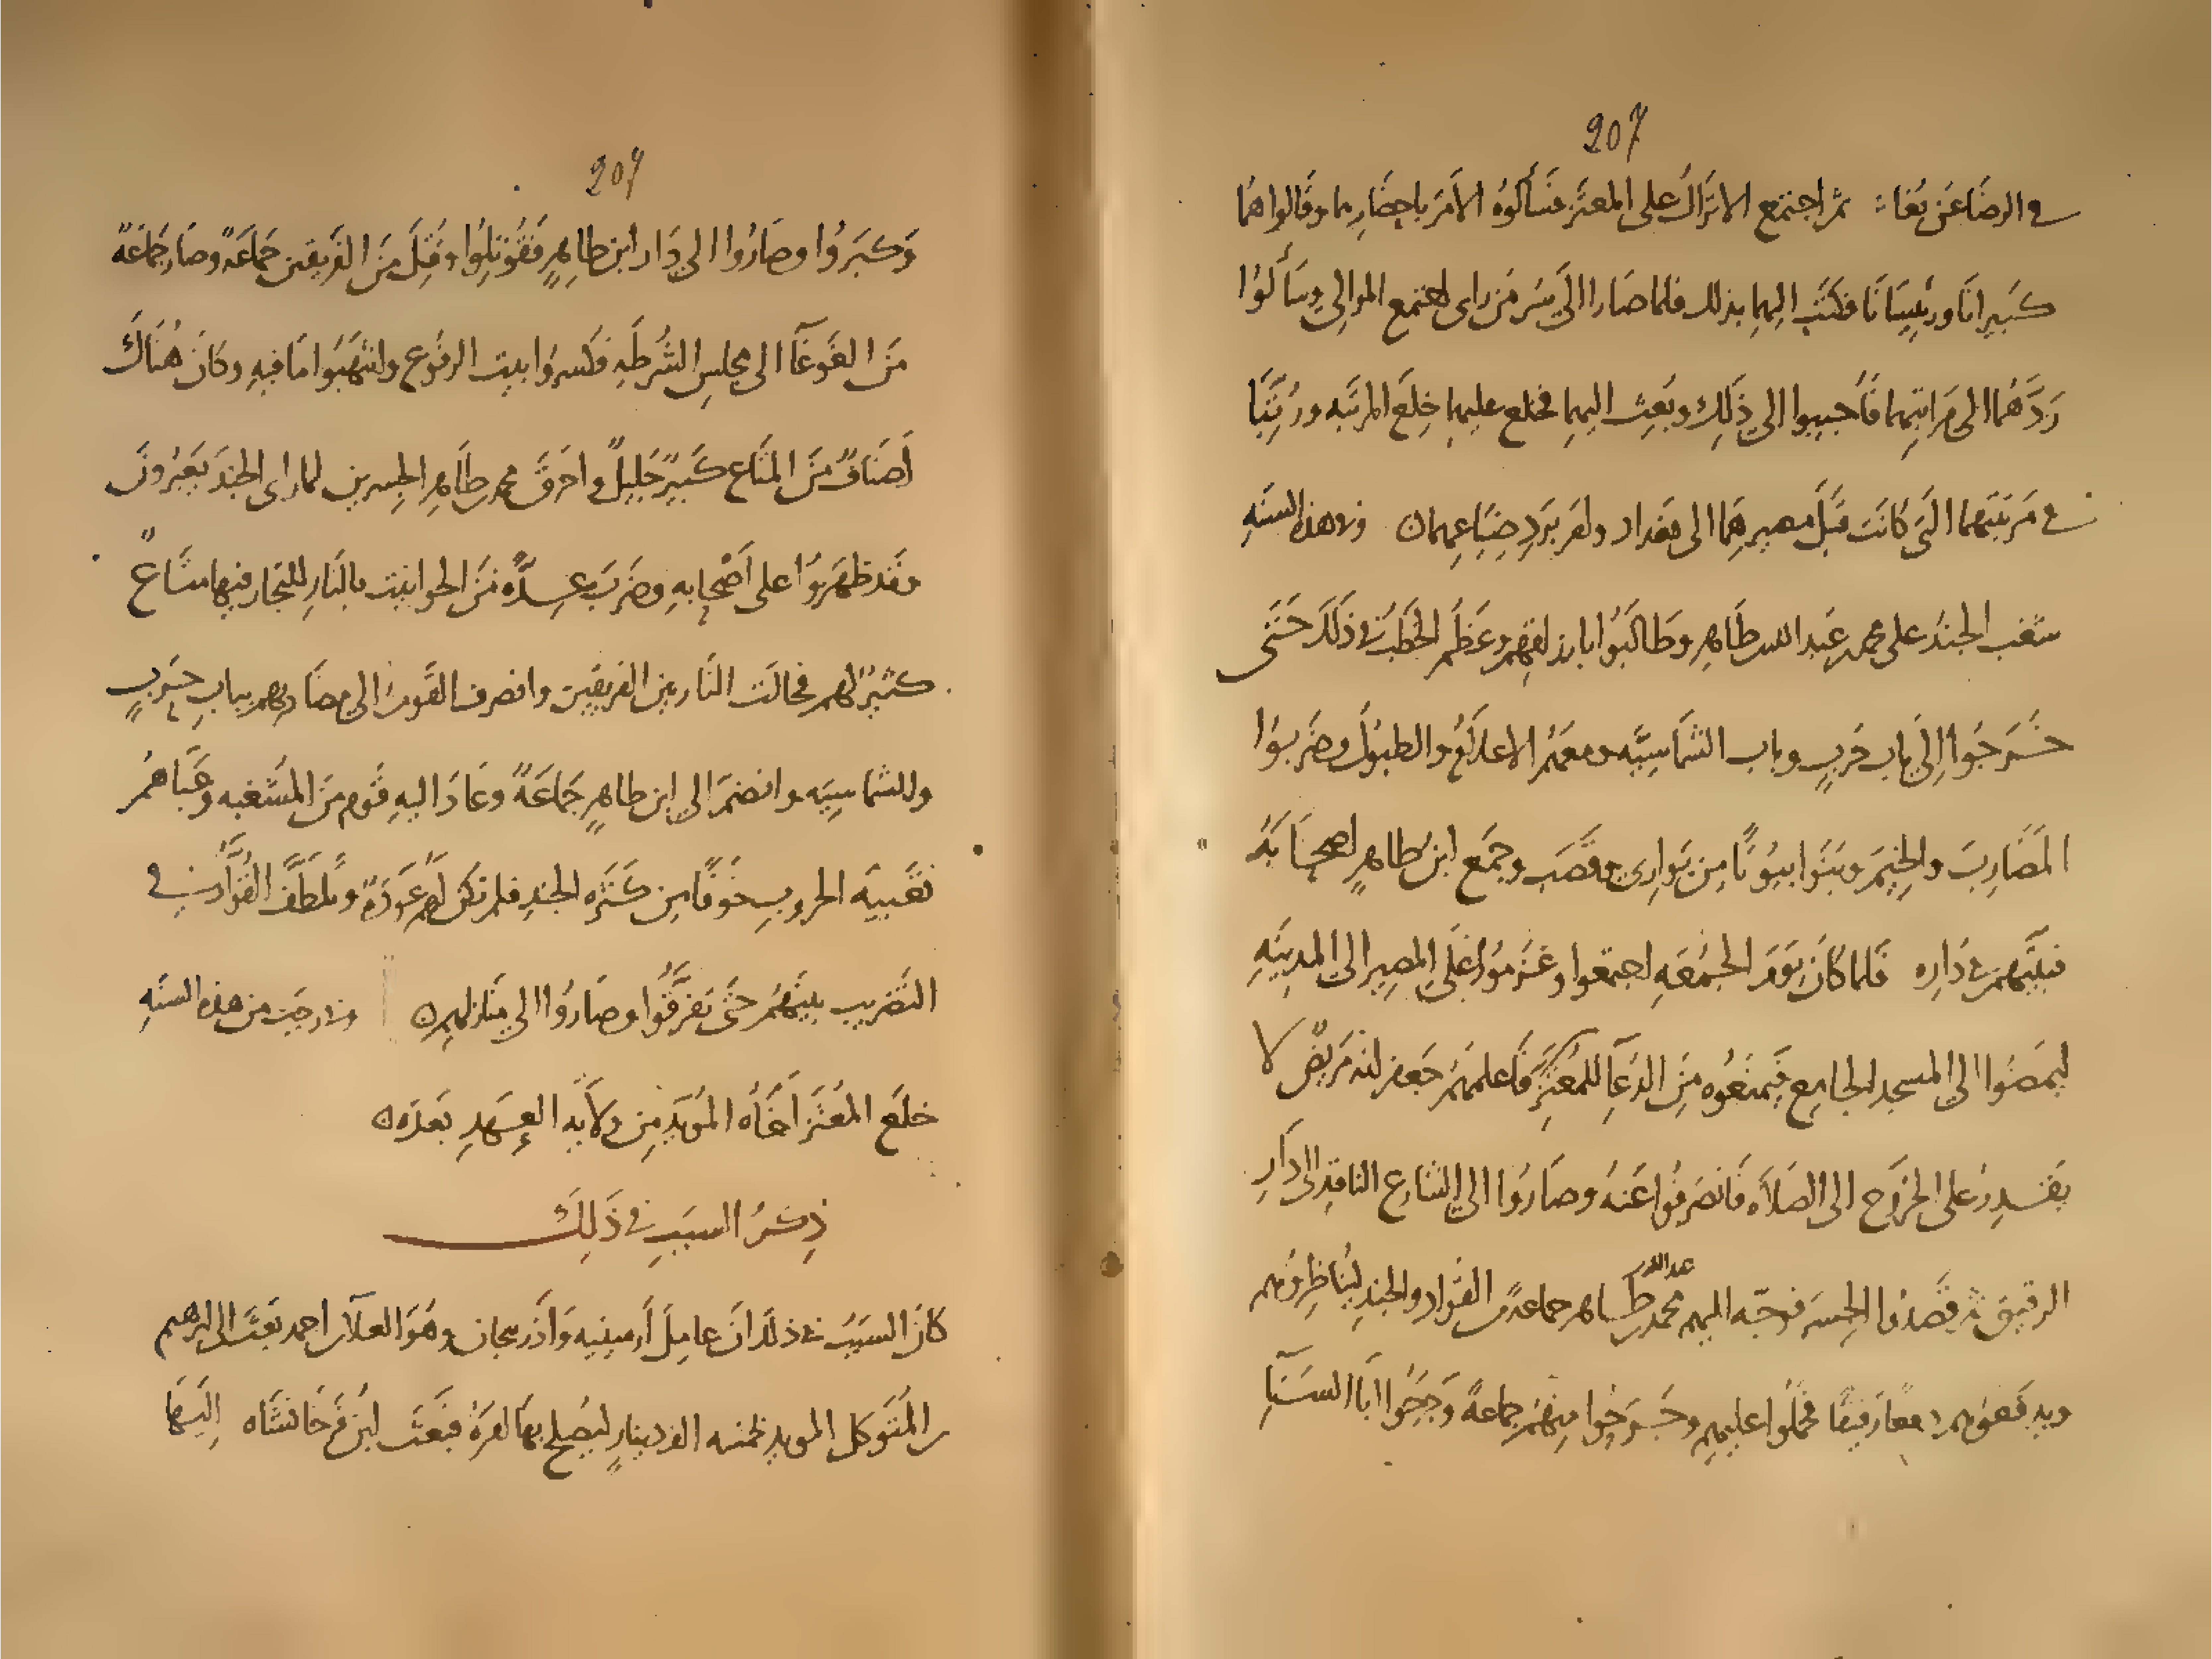 207
في الرضا عن بُغا ⁝ ثم اجتمع الاتراك على المعتز فسألوه الامر باحضارهما وقالوا هما
كبيرانا ورئيسانا فكتب اليهما بذلك فلما صارا الى سر من راى اجتمع الموالي وسألوا
ردهما الى مراتبهما فأجيبوا الى ذلك وبعث اليهما فخلع عليهما خلع المرتبه ورُتّبا
في مرتبتهما التي كانت قبل مصيرهما الى بغداد ولم يرد ضياعهما ۞ وفي هذه السنه
شغب الجند على محمد بن عبد الله بن طاهر وطالبوا بارزاقهم وعظم الخطب في ذلك حتى
خرجوا الى باب حرب وباب الشماسيه ومعهم الاعلام والطبول وضربوا
المضارب والخيم وبنوا بيوتا من بواري وقصب وجمع ابن طاهر اصحابه
فبيّتهم في داره فلما كان يوم الجمعه اجتمعوا وعزموا على المصير الى المدينه
ليمضوا الى المسجد الجامع فيمنعوه من الدعآ للمعتز فأعلمهم جعفر انه مريض لا
يقدر على الخروج الى الصلاه فانصرفوا عنه وصاروا الى الشارع النافذ الى دار
الرقيق ثم قصدوا الجسر فوجّه اليهم محمد بن عبدالله بن طاهر جماعة من القواد والجند ليناظروهم
ويدفعوهم دفعا رفيقا فحملوا عليهم وجرحوا منهم جماعة وجرحوا ابا السنا
207
وكبروا وصاروا الى دار ابن طاهر فقوتلوا وقتل من الفريقين جماعة وصار جماعة
من الغوغآ الى مجلس الشرطه فكسروا بيت الرفوع وانتهبوا ما فيه وكان هناك
أصناف من المتاع كبير جليل واحرق محمد بن طاهر الجسرين لما راى الجند يعبرون
وقد ظهروا على أصحابه وضرب عدّه من الحوانيت بالنار للتجار فيها متاع
كثير لهم فحالت النار بين الفريقين وانصرف القوم الى مضاربهم بباب حرب
والشماسيه وانضم الى ابن طاهر جماعة وعاد اليه قوم من المشغبه وعباهم
تعبيه الحروب خوفا من كثره الجند فلم تكن لهم عودة وتلطف القواد في
التضريب بينهم حتى تفرقوا وصاروا الى منازلهم ۞ وفي رجب من هذه السنه
خلع المعتز أخاه المؤيد من ولايه العهد بعده ۞
ذكر السبب في ذلك
كان السبب في ذلك ان عامل أرمينيه وأذربيجان وهو العلا بن احمد بعث الى ابرهيم
بن المتوكل المويد بخمسه الف دينار ليصلح بها امره فبعث ابن فرخانشاه اليها